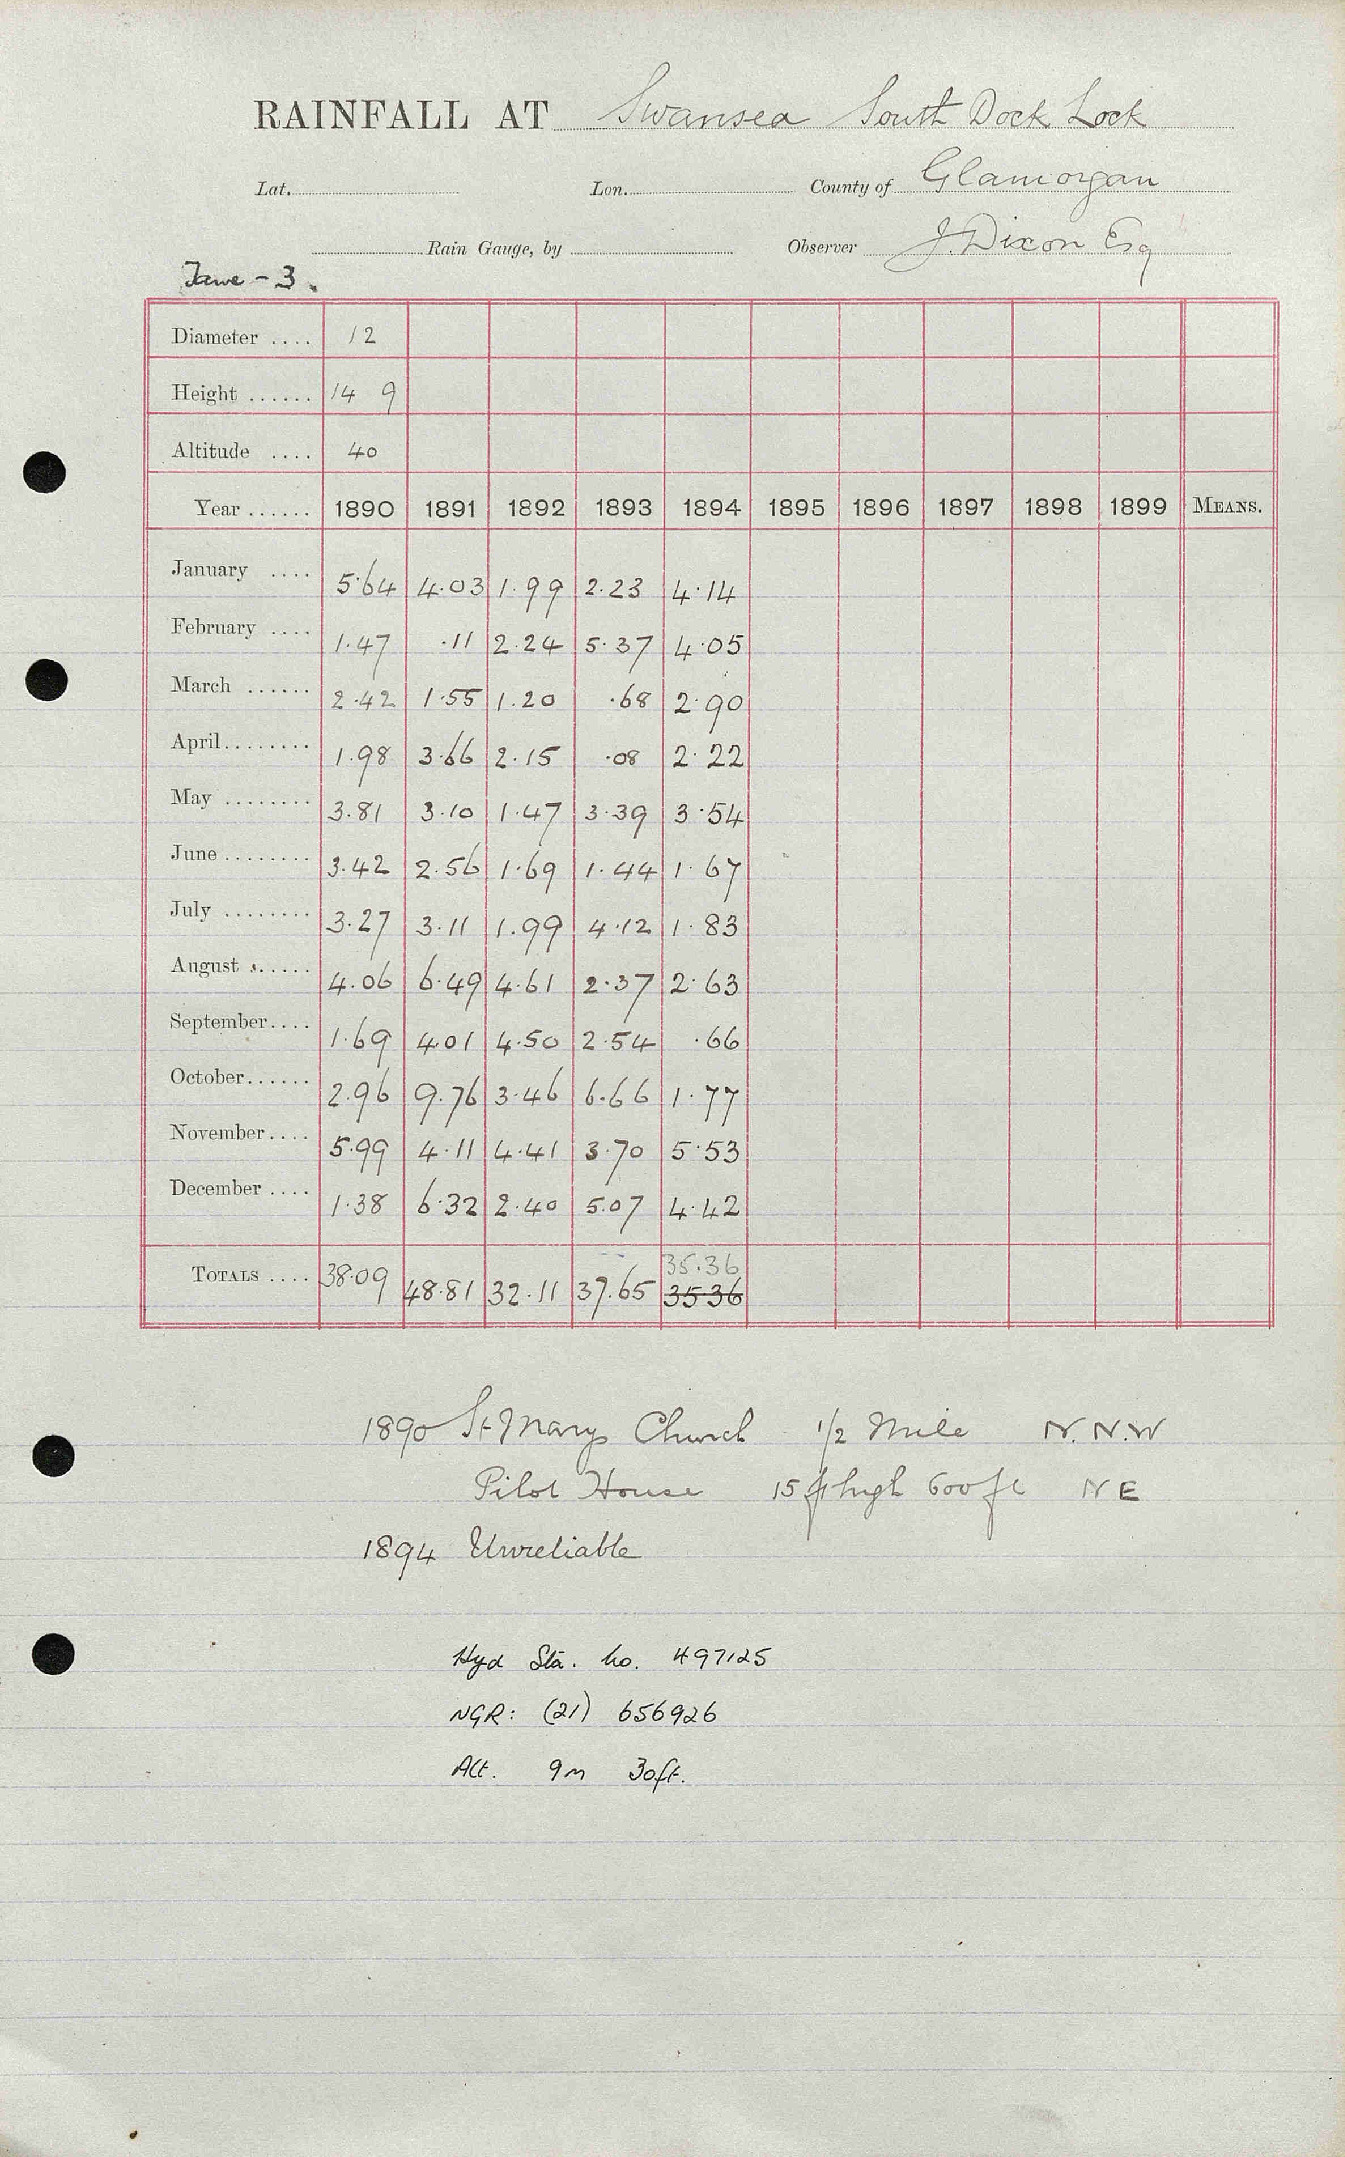 RAINFALL AT Swansea South Dock Lock
Lat. Lon. County of Glamorgan
Rain Gauge, by Observer J. Dixon Esq
Tawe - 3.
Diameter .... 12
Height ...... 14 9
Altitude .... 40
Year ...... 1890 1891 1892 1893 1894 1895 1896 1897 1898 1899 MEANS.
January .... 5.64 4.03 1.99 2.23 4.14
February .... 1.47 .11 2.24 5.37 4.05
March ...... 2.42 1.55 1.20 .68 2.90
April........ 1.98 3.66 2.15 .08 2.22
May ........ 3.81 3.10 1.47 3.39 3.54
June ........ 3.42 2.56 1.69 1.44 1.67
July ........ 3.27 3.11 1.99 4.12 1.83
August ...... 4.06 6.49 4.61 2.37 2.63
September.... 1.69 4.01 4.50 2.54 .66
October...... 2.96 9.76 3.46 6.66 1.77
November.... 5.99 4.11 4.41 3.70 5.53
December .... 1.38 6.32 2.40 5.07 4.42
35.36
TOTALS .... 38.09 48.81 32.11 37.65 35.36
1890 St Marys Church 1/2 Mile N.N.W
Pilot House 15 ft high 600 ft NE
1894 Unreliable
Hyd Sta. No. 497125
NGR: (21) 656926
Alt. 9m 30ft.